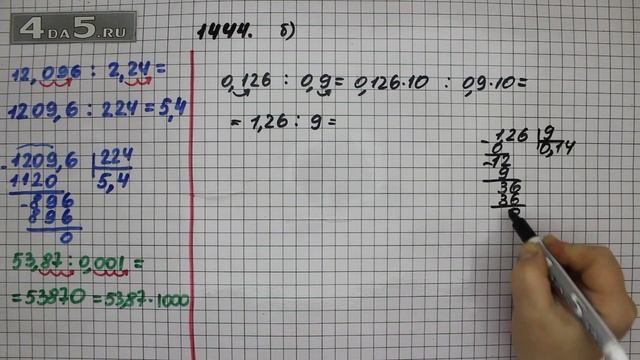 4DA5.RU
1444. б)
12,096 : 2,24 =
1209,6 : 224 = 5,4
1209,6 | 224
1120 | 5,4
- 896
896
0
53,87 : 0,001 =
= 53870 = 53,87 · 1000
0,126 : 0,9 = 0,126 · 10 : 0,9 · 10 =
= 1,26 : 9 =
- 1,26 | 9
0 | 0,14
- 12
9
36
36
0